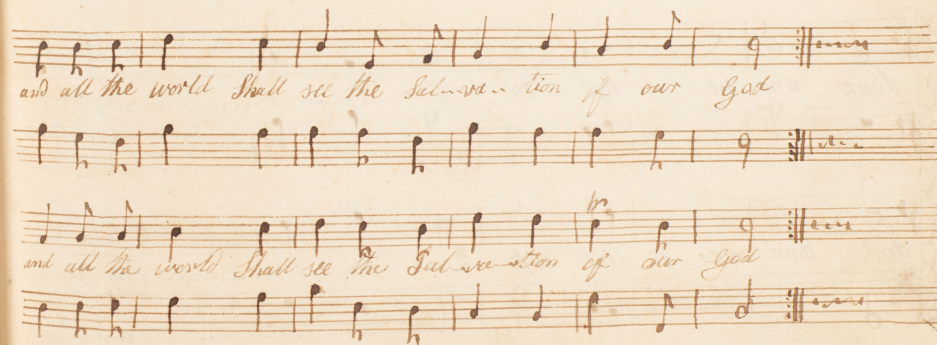 and all the world Shall see the Sal--va-- tion of our God
and all the world Shall see the Sal--va--tion of our God